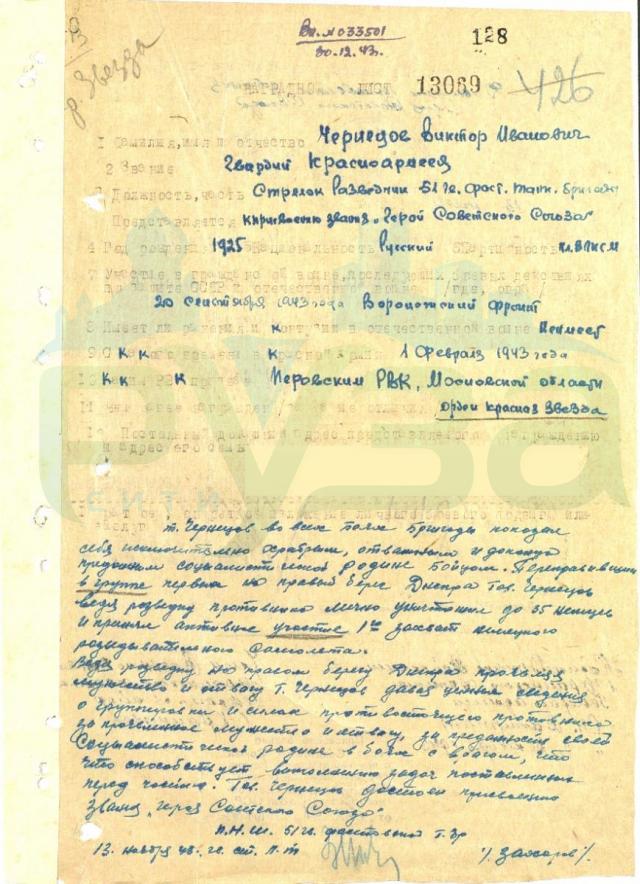 Вх. №033501
30.12.43г.
128
Кр. Звезда
НАГРАДНОЙ ЛИСТ 13069
426
1 Фамилия, имя и отчество Чернецов Виктор Иванович
2 Звание Гвардии Красноармеец
3 Должность, часть Стрелок Разведчик 51 гв. Фаст. танк. Бригады
Представляется к присвоению звания "Герой Советского Союза"
4 Год рождения 1925 национальность Русский партийность чл. ВЛКСМ
7 Участие в гражданской войне, последующих боевых действиях
по защите СССР и отечественной войне где,
20 сентября 1943 года Воронежский Фронт
8 Имеет ли ранения и контузии в отечественной войне Не имеет
9 С какого времени в красной армии 1 Февраля 1943 года
10 Каким РВК призван Перовским РВК, Московской области
11 Чем ранее награжден отличия орден Красная Звезда
12 Постоянный домашний адрес представляемого к награждению
и адрес его семьи
РУЗА
СИТИ
подвига или
заслуг
т. Чернецов во всех боях бригады показал
себя исключительно храбрым, отважным и до конца
преданным социалистической родине бойцом. Переправившись
в группе первым на правый берег Днепра Тов. Чернецов
ведя разведку противника лично уничтожил до 35 немцев
и принял активное участие захват немецкого
разведывательного самолета.
Ведя разведку на правом берегу Днепра проявляя
мужество и отвагу Т. Чернецов давал ценные сведения
о группировки и силах противостоящего противника
за проявленное мужество и отвагу, за преданность своей
Социалистической родине в боях с врагом, что
что способствует выполнению задач поставленных
перед частью. Тов. Чернецов достоин присвоения
Звания "Герой Советского Союза"
П.Н.Ш. 51 гв. фастовской Т. Бр
13. ноября 43. гв. ст. л-т /Захаров/.